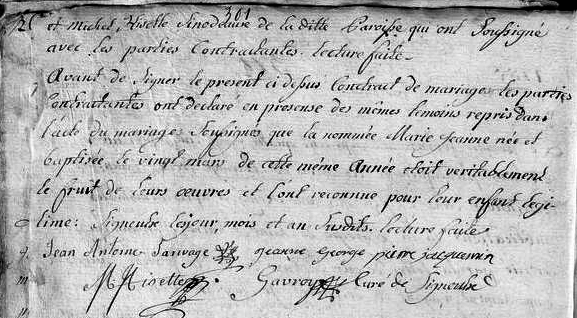 301
et Michel Misette Sinodateur de la ditte Paroisse qui ont Soussigné
avec les parties Contractantes. lecture faite.
Avant de Signer le present ci dessus Contract de mariages les parties
Contractantes ont declaré en presense des mêmes temoins repris dans
l'acte du mariages Soussignes que la nommée Marie Jeanne née et
baptisée le vingt mars de cette même Année etoit veritablement
le fruit de leurs œuvres et l'ont reconnue pour leur enfant legi
time: Signeulx les jour, mois et an Susdits. lecture faite
Jean Antoine Sauvage jeanne George pierre jacquemin
M Misette Gavroy Curé de Signeulx